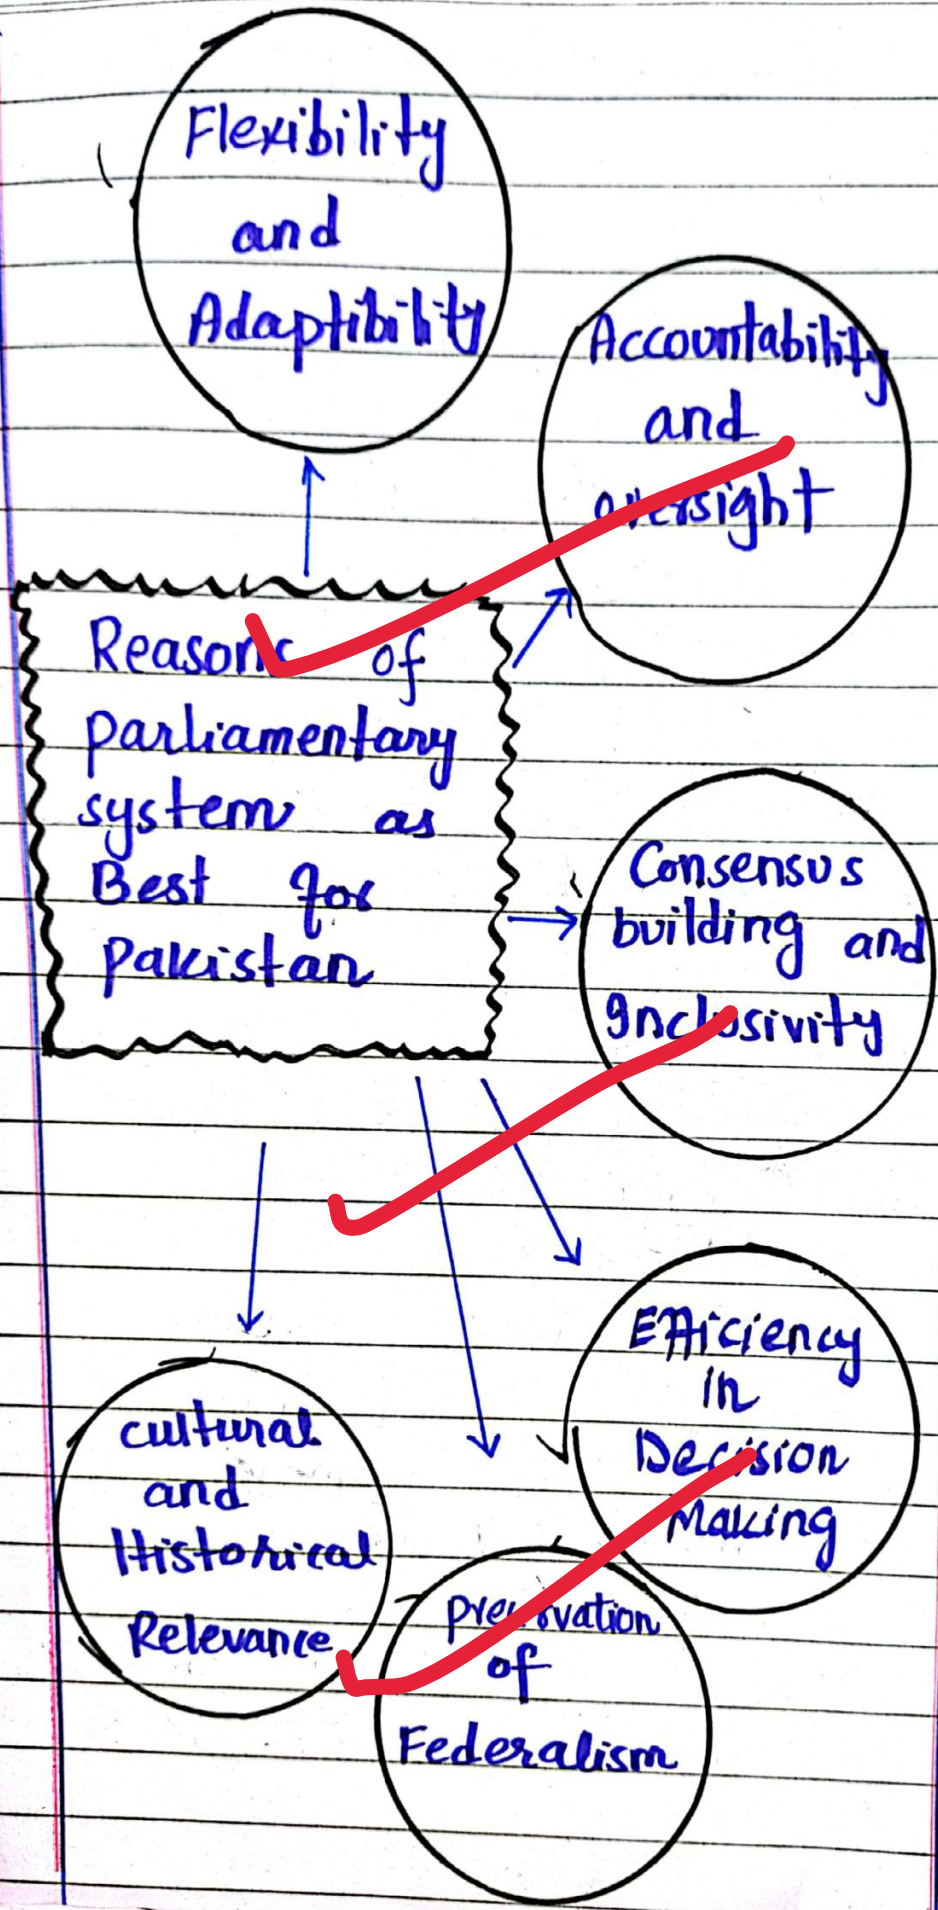 Flexibility
and
Adaptibility
Accountability
and
oversight
Reasons of
parliamentary
system as
Best for
pakistan
Consensus
building and
Inclusivity
Efficiency
in
Decision
Making
cultural
and
Historical
Relevance
preservation
of
Federalism